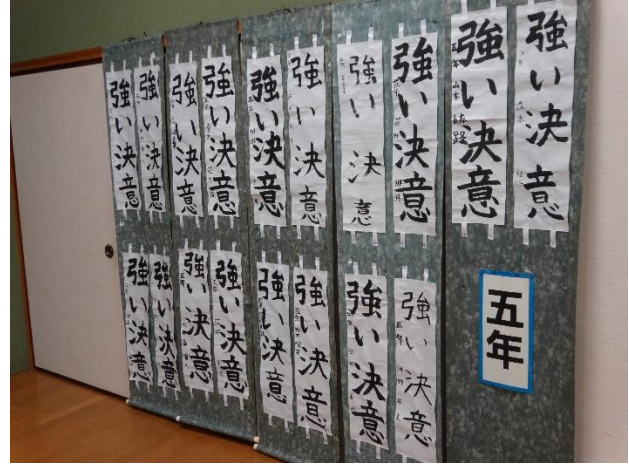 強い決意
強い決意
強い決意
強い決意
強い決意
強い決意
強い決意
強い決意
強い決意
強い決意
五年
強い決意
強い決意
強い決意
強い決意
強い決意
強い決意
強い決意
強い決意